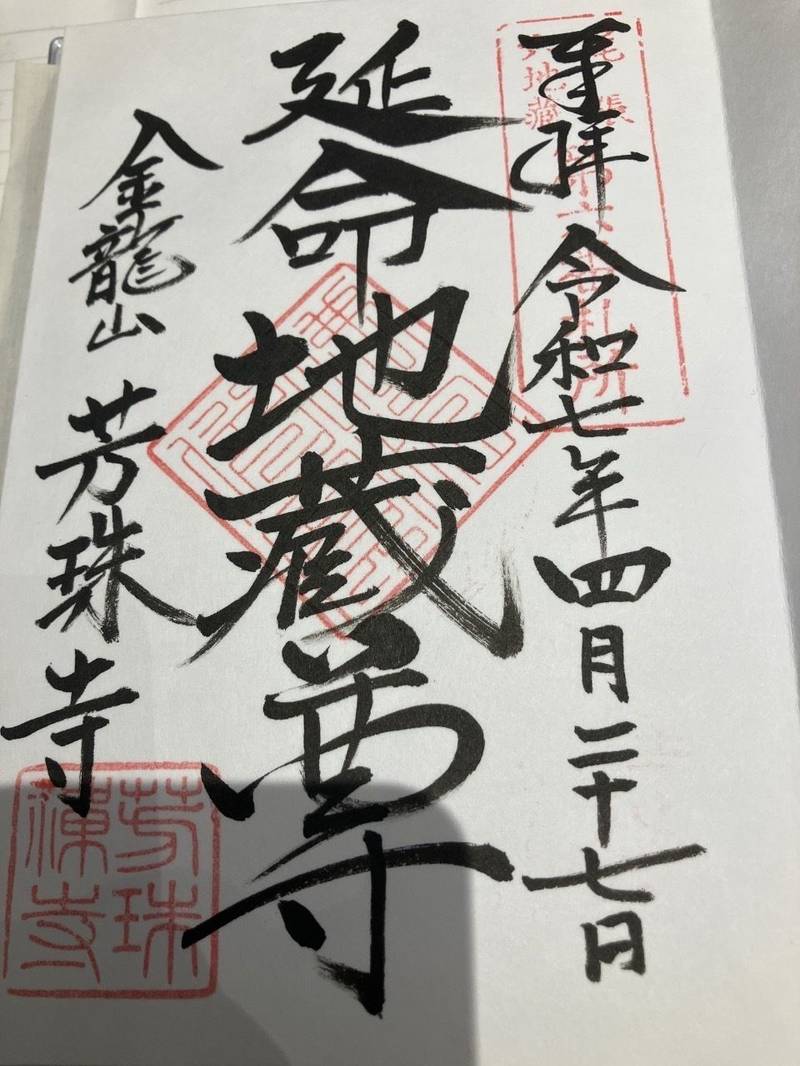 奉拝 令和七年四月二十七日
尾張
六地蔵
延命地蔵尊
金龍山 芳珠寺
芳珠
禅寺